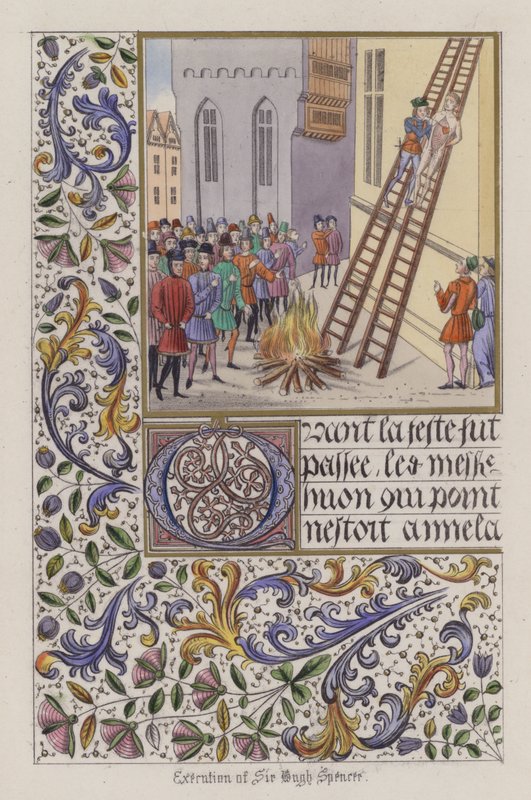 Quant la feste fut
passee, led messe
huon qui point
nestoit amela
Execution of Sir Hugh Spencer.